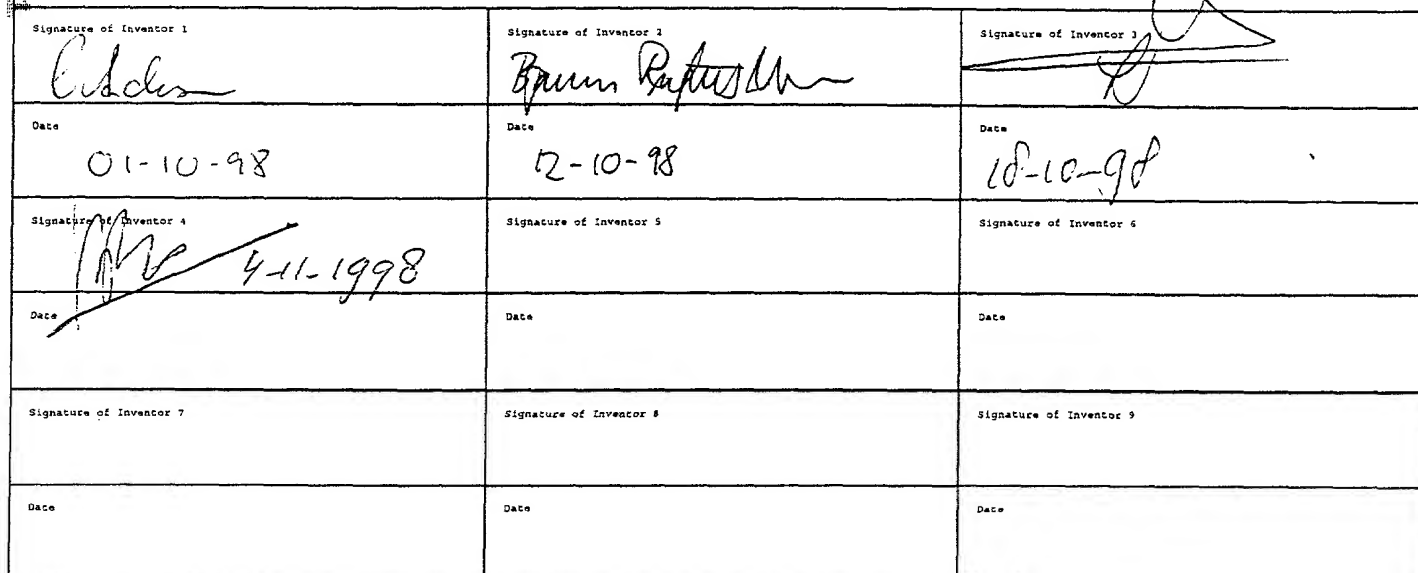 Signature of Inventor 1
Signature of Inventor 2
Signature of Inventor 3
Date
01-10-98
Date
12-10-98
Date
18-10-98
Signature of Inventor 4
4-11-1998
Signature of Inventor 5
Signature of Inventor 6
Date
Date
Date
Signature of Inventor 7
Signature of Inventor 8
Signature of Inventor 9
Date
Date
Date